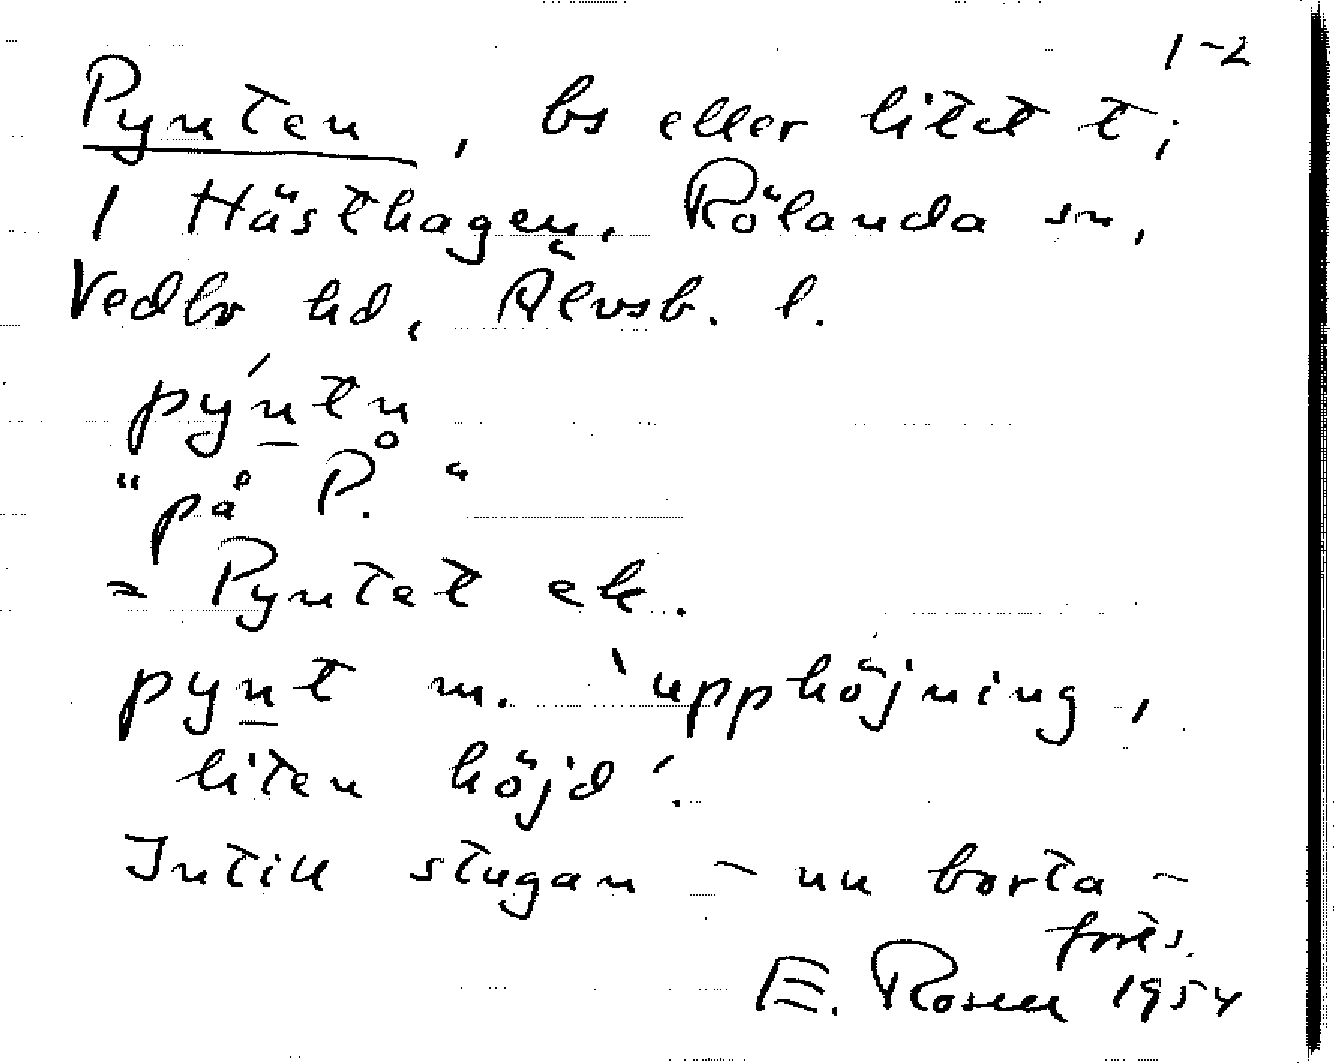 1-2
Pynten, bs eller litet t;
1 Hästhagen. Rölanda sn,
Vedbo hd, Älvsb. l.
pýn̲tn̥
"på P."
= Pyntet ek.
pyn̲t m. 'upphöjning,
liten höjd'.
Intill stugan - nu borta -
E. Rosell 1954